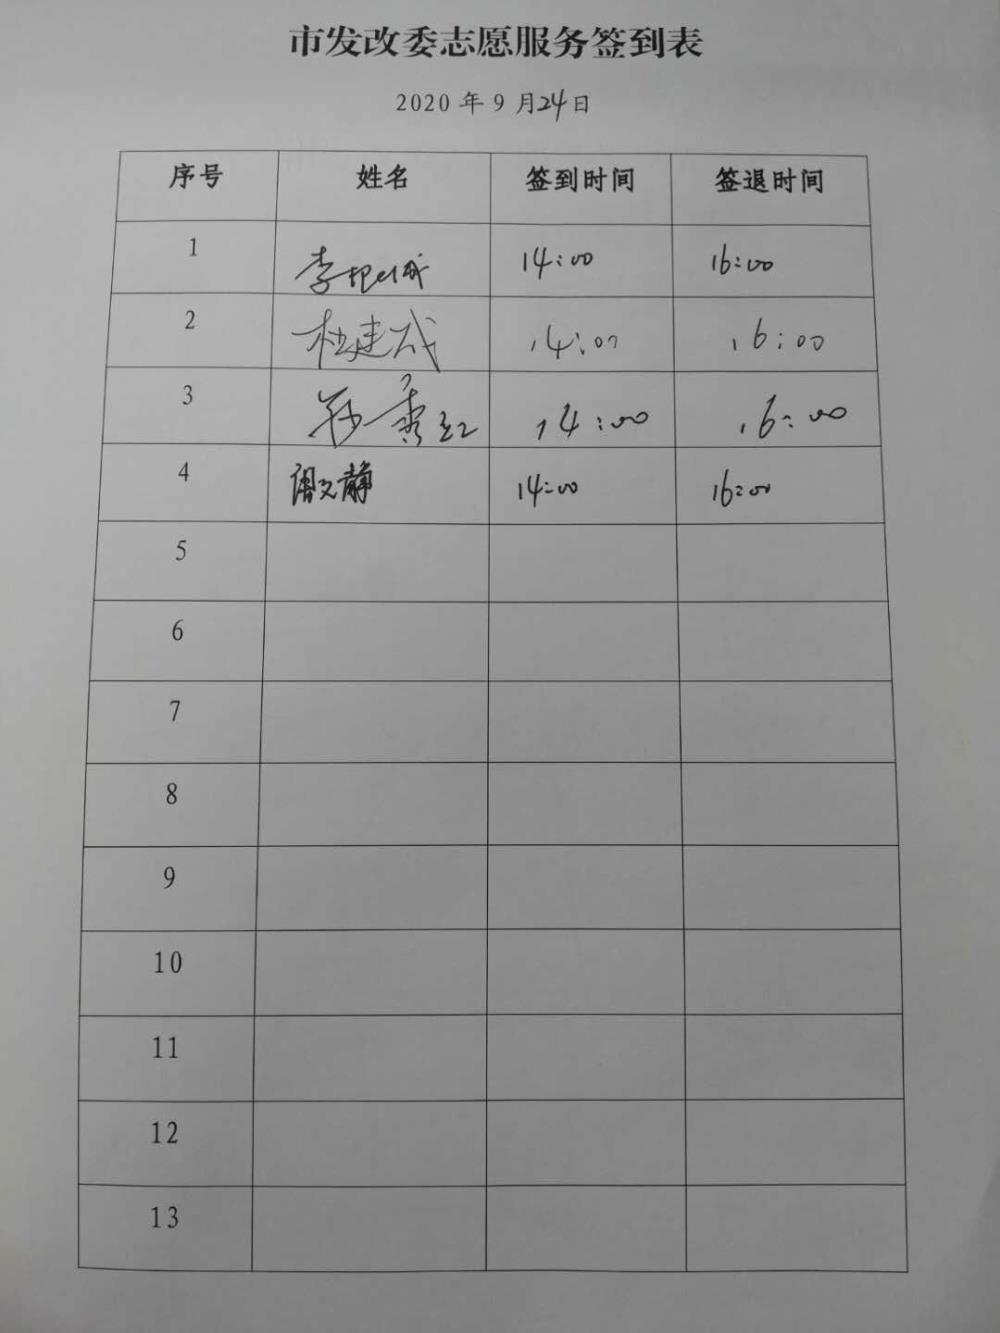 市发改委志愿服务签到表
2020 年 9 月 24 日
序号 姓名 签到时间 签退时间
1 14:00 16:00
2 杜建成 14:00 16:00
3 孙秀红 14:00 16:00
4 周文静 14:00 16:00
5
6
7
8
9
10
11
12
13